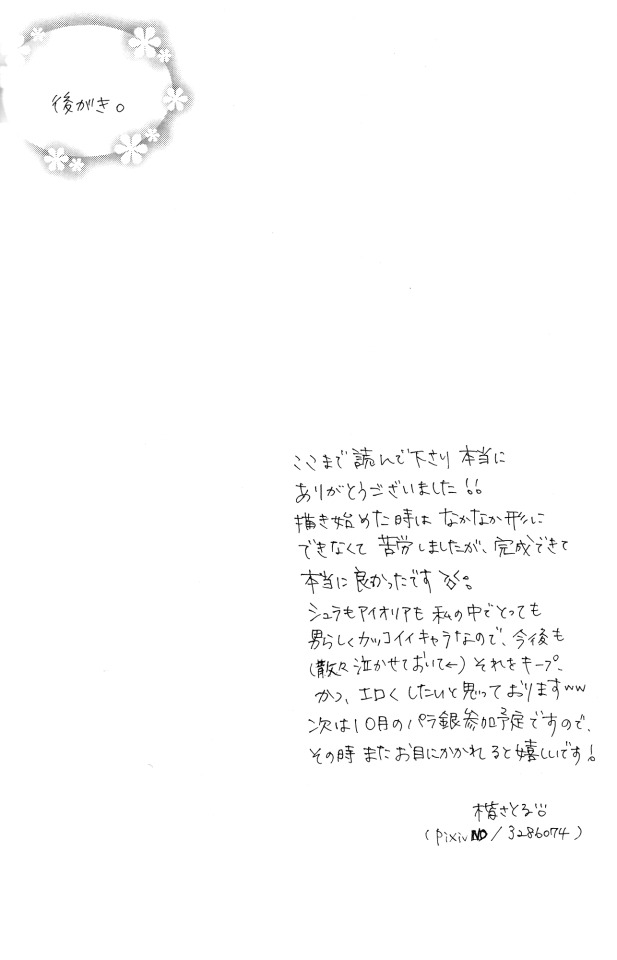 後がき。
ここまで読んで下さり 本当に
ありがとうございました!!
描き始めた時は なかなか形に
できなくて 苦労しましたが、完成できて
本当に良かったです
シュラもアイオリアも 私の中でとっても
男らしくカッコイイキャラなので、今後も
(散々泣かせておいて←) それをキープ、
かつ、エロくしたいと思っておりますww
次は10月のパラ銀参加予定ですので、
その時またお目にかかれると嬉しいです!
さとる
(pixiv NO/3286074)